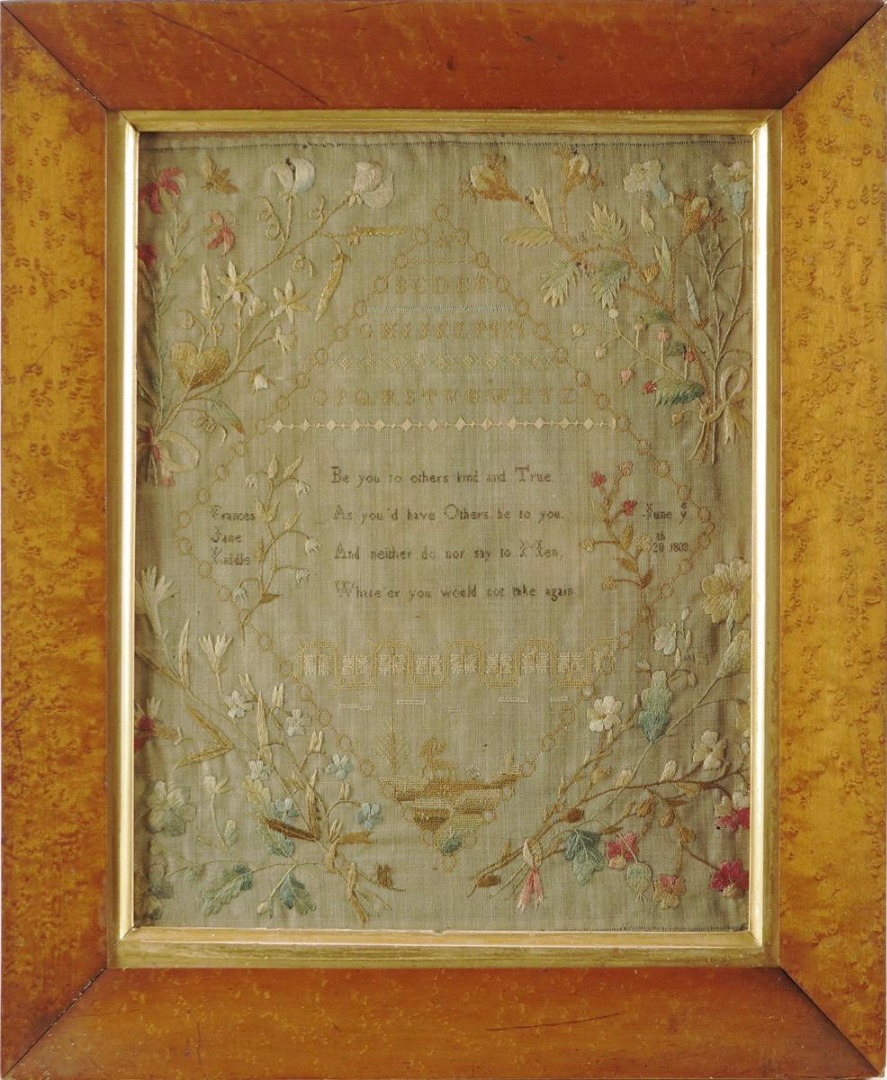 A
B C D E F
G H I J K L M N
O P Q R S T U V W X Y Z
Be you to others kind and True
As you'd have Others be to you.
And neither do nor say to Men,
Whate'er you would not take again
Frances
Jane
Kiddle
June ye
20th 1803